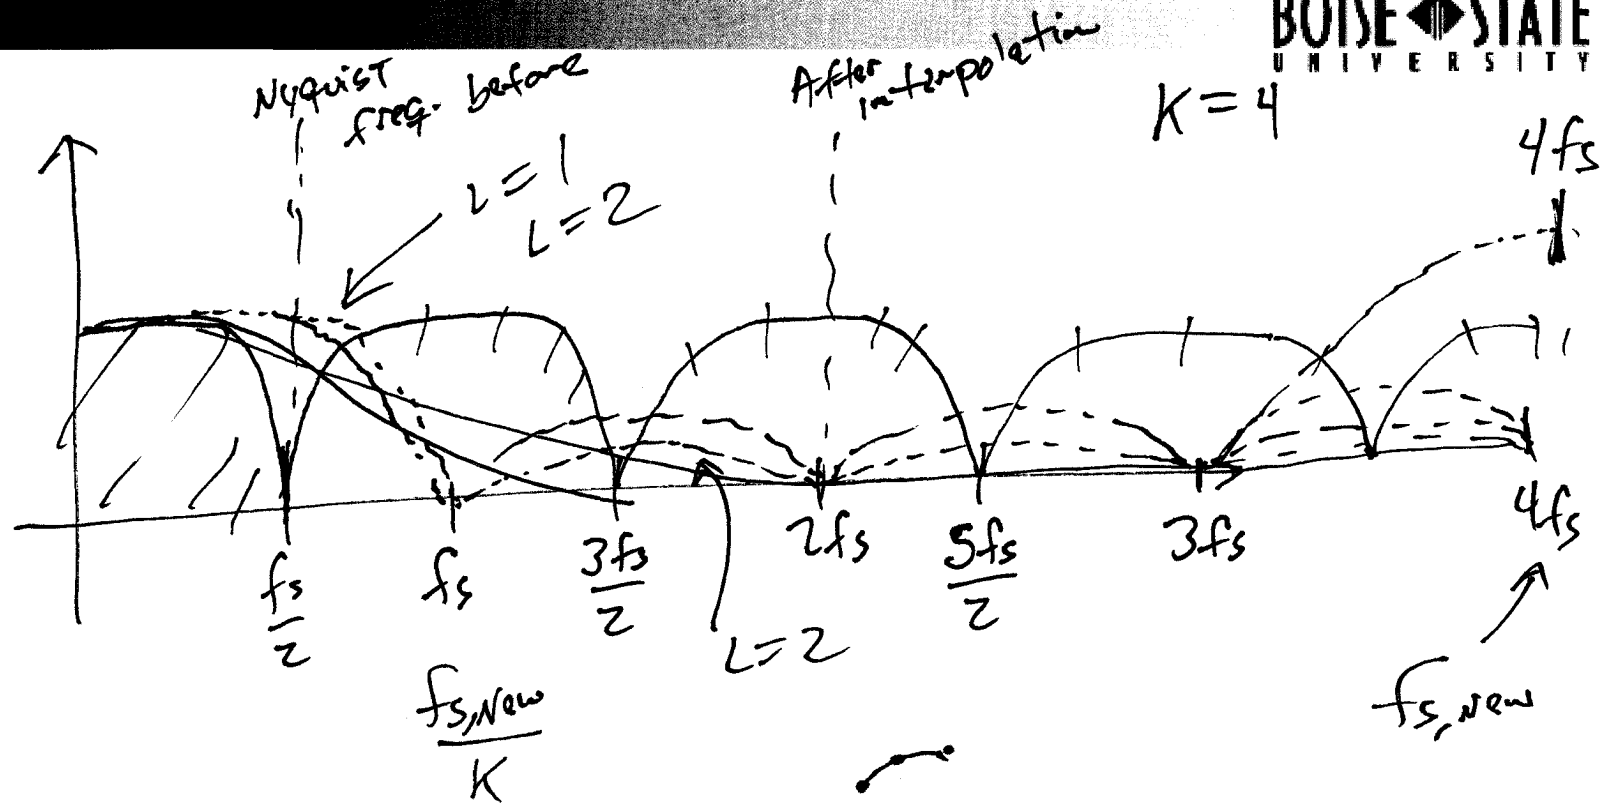 BOISE STATE
UNIVERSITY
Nyquist
freq. before
After
interpolation
K = 4
4fs
L = 1
L = 2
fs/2
fs
3fs/2
2fs
5fs/2
3fs
4fs
L = 2
fs,New/K
fs,New